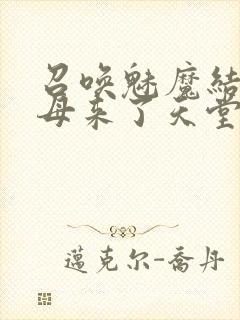 召唤魅魔结
母来了天堂
迈克尔-乔丹